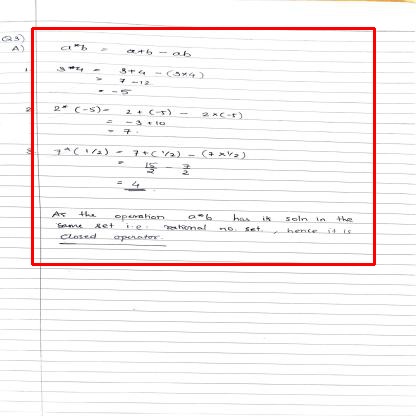 Q3)
A) a*b = a+b - ab
1. 3*4 = 3+4 - (3×4)
= 7 - 12
= -5
2. 2*(-5) = 2 + (-5) - 2×(-5)
= -3 + 10
= 7.
3. 7*(1/2) = 7 + (1/2) - (7×1/2)
= 15/2 - 7/2
= 4
As the operation a*b has its soln in the
same set i.e. rational no. set., hence it is
closed operator.